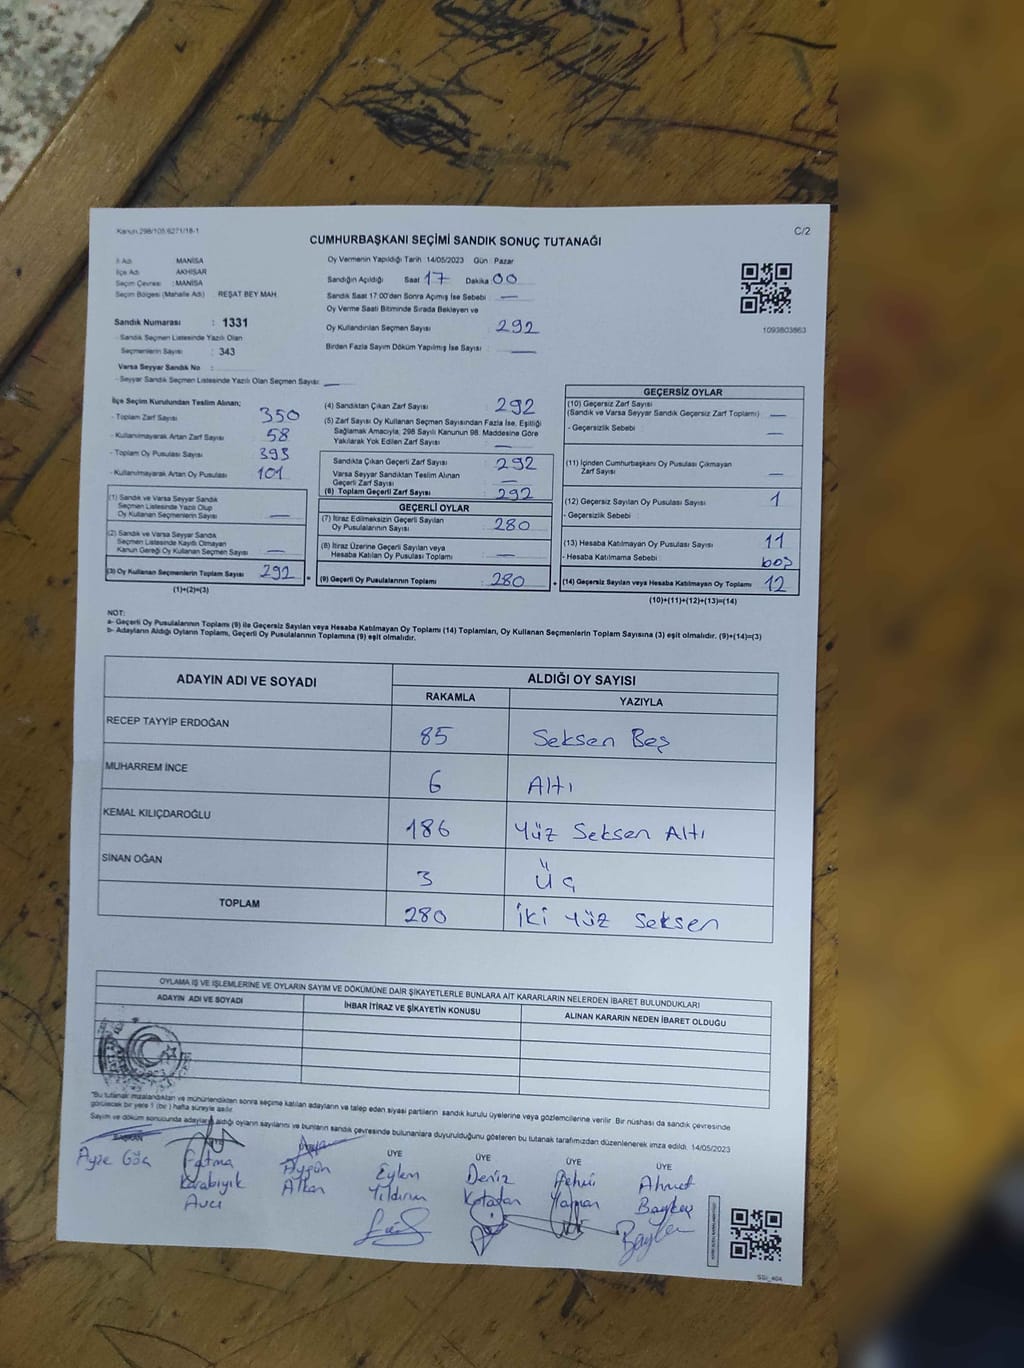 Kanun 298/105;6271/18-1
C/2
CUMHURBAŞKANI SEÇİMİ SANDIK SONUÇ TUTANAĞI
İl Adı MANİSA
İlçe Adı AKHİSAR
Seçim Çevresi : MANİSA
Seçim Bölgesi (Mahalle Adı) REŞAT BEY MAH.
Sandık Numarası : 1331
Sandık Seçmen Listesinde Yazılı Olan
Seçmenlerin Sayısı : 343
Varsa Seyyar Sandık No :
- Seyyar Sandık Seçmen Listesinde Yazılı Olan Seçmen Sayısı: —
Oy Vermenin Yapıldığı Tarih 14/05/2023 Gün : Pazar
Sandığın Açıldığı Saat 17 Dakika 00
Sandık Saat 17:00'den Sonra Açımış İse Sebebi : —
Oy Verme Saati Bitiminde Sırada Bekleyen ve
Oy Kullandırılan Seçmen Sayısı : 292
Birden Fazla Sayım Döküm Yapılmış İse Sayısı : —
1093803863
İlçe Seçim Kurulundan Teslim Alınan;
- Toplam Zarf Sayısı : 350
- Kullanılmayarak Artan Zarf Sayısı : 58
- Toplam Oy Pusulası Sayısı : 393
- Kullanılmayarak Artan Oy Pusulası : 101
(1) Sandık ve Varsa Seyyar Sandık
Seçmen Listesinde Yazılı Olup
Oy Kullanan Seçmenlerin Sayısı : —
(2) Sandık ve Varsa Seyyar Sandık
Seçmen Listesinde Kayıtlı Olmayan
Kanun Gereği Oy Kullanan Seçmen Sayısı : —
(3) Oy Kullanan Seçmenlerin Toplam Sayısı : 292
(1)+(2)=(3)
(4) Sandıktan Çıkan Zarf Sayısı : 292
(5) Zarf Sayısı Oy Kullanan Seçmen Sayısından Fazla İse, Eşitliği
Sağlamak Amacıyla; 298 Sayılı Kanunun 98. Maddesine Göre
Yakılarak Yok Edilen Zarf Sayısı : —
Sandıkta Çıkan Geçerli Zarf Sayısı : 292
Varsa Seyyar Sandıktan Teslim Alınan
Geçerli Zarf Sayısı : —
(6) Toplam Geçerli Zarf Sayısı : 292
GEÇERLİ OYLAR
(7) İtiraz Edilmeksizin Geçerli Sayılan
Oy Pusulalarının Sayısı : 280
(8) İtiraz Üzerine Geçerli Sayılan veya
Hesaba Katılan Oy Pusulası Toplamı : —
(9) Geçerli Oy Pusulalarının Toplamı : 280
GEÇERSİZ OYLAR
(10) Geçersiz Zarf Sayısı
(Sandık ve Varsa Seyyar Sandık Geçersiz Zarf Toplamı) : —
- Geçersizlik Sebebi : —
(11) İçinden Cumhurbaşkanı Oy Pusulası Çıkmayan
Zarf Sayısı : —
(12) Geçersiz Sayılan Oy Pusulası Sayısı : 1
- Geçersizlik Sebebi :
(13) Hesaba Katılmayan Oy Pusulası Sayısı : 11
- Hesaba Katılmama Sebebi : boş
(14) Geçersiz Sayılan veya Hesaba Katılmayan Oy Toplamı : 12
(10)+(11)+(12)+(13)=(14)
NOT:
a- Geçerli Oy Pusulalarının Toplamı (9) ile Geçersiz Sayılan veya Hesaba Katılmayan Oy Toplamı (14) Toplamları, Oy Kullanan Seçmenlerin Toplam Sayısına (3) eşit olmalıdır. (9)+(14)=(3)
b- Adayların Aldığı Oyların Toplamı, Geçerli Oy Pusulalarının Toplamına (9) eşit olmalıdır.
ADAYIN ADI VE SOYADI
ALDIĞI OY SAYISI
RAKAMLA YAZIYLA
RECEP TAYYİP ERDOĞAN 85 Seksen Beş
MUHARREM İNCE 6 Altı
KEMAL KILIÇDAROĞLU 186 Yüz Seksen Altı
SİNAN OĞAN 3 Üç
TOPLAM 280 İki Yüz Seksen
OYLAMA İŞ VE İŞLEMLERİNE VE OYLARIN SAYIM VE DÖKÜMÜNE DAİR ŞİKAYETLERLE BUNLARA AİT KARARLARIN NELERDEN İBARET BULUNDUKLARI
ADAYIN ADI VE SOYADI İHBAR İTİRAZ VE ŞİKAYETİN KONUSU ALINAN KARARIN NEDEN İBARET OLDUĞU
"Bu tutanak imzalandıktan ve mühürlendikten sonra seçime katılan adayların ve talep eden siyasi partilerin sandık kurulu üyelerine veya gözlemcilerine verilir. Bir nüshası da sandık çevresinde
görülecek bir yere 1 (bir) hafta süreyle asılır.
Sayım ve döküm sonucunda adayların aldığı oyların sayılarını ve bunların sandık çevresinde bulunanlara duyurulduğunu gösteren bu tutanak tarafımızdan düzenlenerek imza edildi. 14/05/2023
BAŞKAN ÜYE ÜYE ÜYE ÜYE
Ayşe Göç Fatma Aygün Eylem Deniz Ahmet
Karabıyık Alkan Yıldırım Yaman
Avcı
SSİ_404